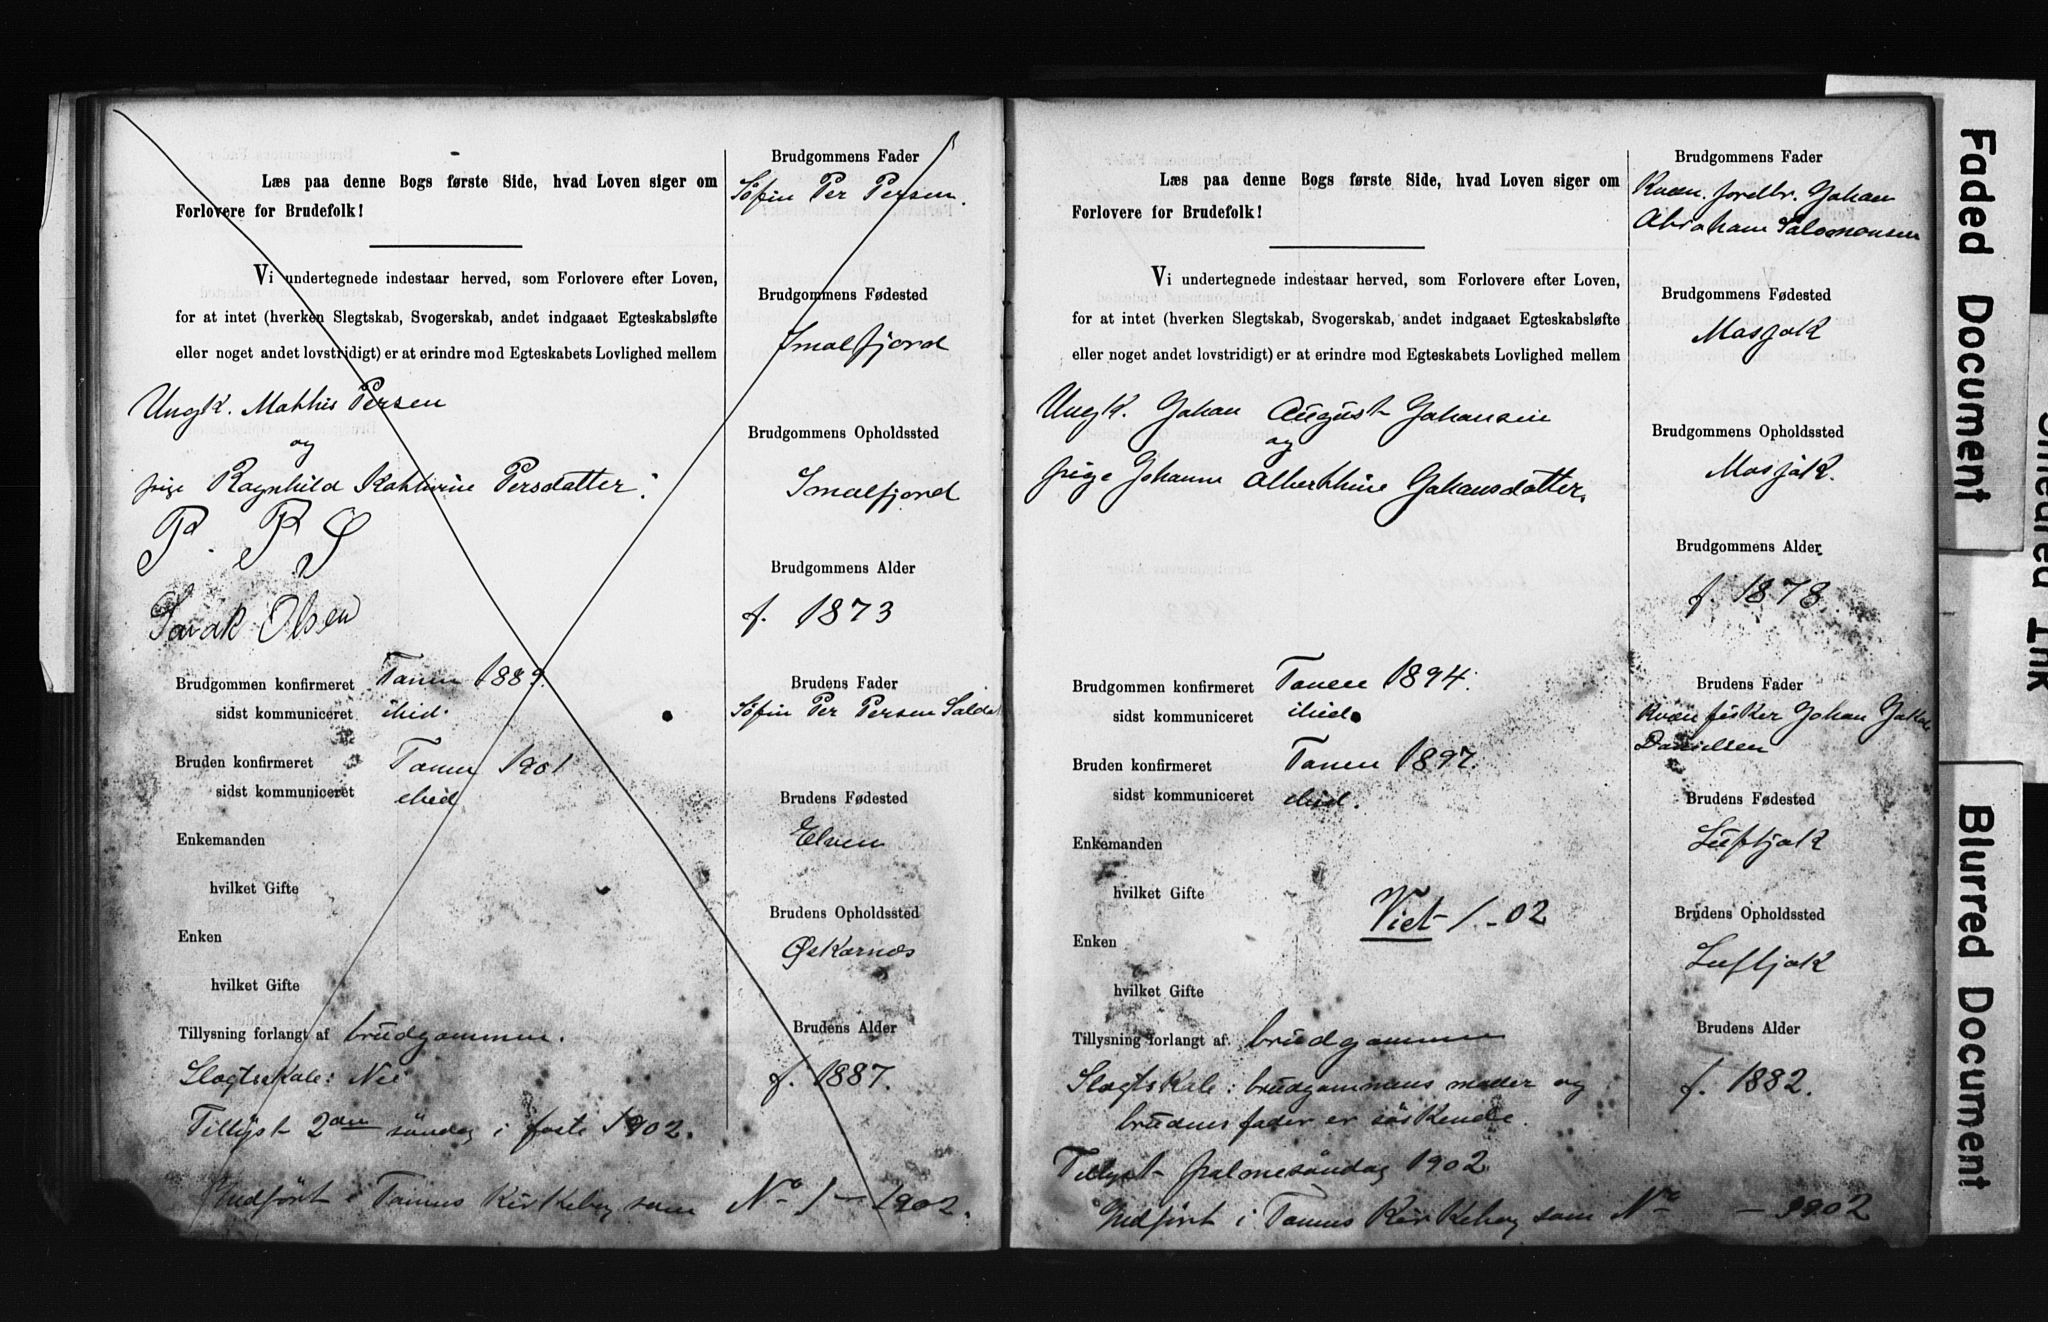 Læs paa denne Bogs første Side, hvad Loven siger om
Forlovere for Brudefolk!
Vi undertegnede indestaar herved, som Forlovere efter Loven,
for at intet (hverken Slegtskab, Svogerskab, andet indgaaet Egteskabsløfte
eller noget andet lovstridigt) er at erindre mod Egteskabets Lovlighed mellem
Ungk. Mathis Persen
og
pige Ragnhild Kathrine Persdatter.
P. P. Ø
Isak Olsen
Brudgommen konfirmeret Tanen 1889.
sidst kommuniceret ibid.
Bruden konfirmeret Tanen 1901
sidst kommuniceret ibid
Enkemanden
hvilket Gifte
Enken
hvilket Gifte
Tillysning forlangt af brudgommen.
Slegtskab: Nei
Tillyst 2den søndag i faste 1902.
Indført i Tanens Kirkebog som No 1 - 1902.
Brudgommens Fader
Søfin Per Persen.
Brudgommens Fødested
Smalfjord
Brudgommens Opholdssted
Smalfjord
Brudgommens Alder
f. 1873
Brudens Fader
Søfin Per Persen Salda
Brudens Fødested
Elven
Brudens Opholdssted
Øskarnes
Brudens Alder
f. 1887.
Læs paa denne Bogs første Side, hvad Loven siger om
Forlovere for Brudefolk!
Vi undertegnede indestaar herved, som Forlovere efter Loven,
for at intet (hverken Slegtskab, Svogerskab, andet indgaaet Egteskabsløfte
eller noget andet lovstridigt) er at erindre mod Egteskabets Lovlighed mellem
Ungk. Johan August Johansen
og
pige Johanne Alberthine Johansdatter.
Brudgommen konfirmeret Tanen 1894.
sidst kommuniceret ibid.
Bruden konfirmeret Tanen 1897.
sidst kommuniceret ibid.
Enkemanden
hvilket Gifte
Viet 1.-02
Enken
hvilket Gifte
Tillysning forlangt af. brudgommen
Slegtskab: brudgommens moder og
brudens fader er søskende.
Tillyst palmesøndag 1902
Indført i Tanens Kirkebog som No - 1902
Brudgommens Fader
Kvæn. jordbr. Johan
Abraham Salomonsen
Brudgommens Fødested
Masjok
Brudgommens Opholdssted
Masjok.
Brudgommens Alder
f. 1878
Brudens Fader
Kvæn fisker Johan
Danielsen
Brudens Fødested
Luftjok
Brudens Opholdssted
Luftjok
Brudens Alder
f. 1882.
Faded Document
Smeared Ink
Blurred Document